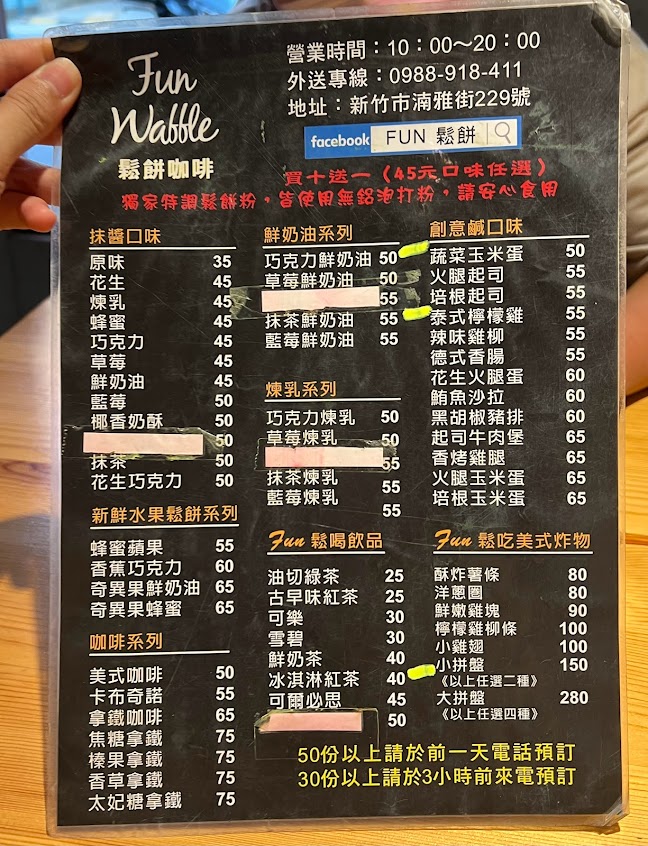 Fun
Waffle
鬆餅咖啡
營業時間：10：00～20：00
外送專線：0988-918-411
地址：新竹市湳雅街229號
facebook FUN 鬆餅
買十送一（45元口味任選）
獨家特調鬆餅粉，皆使用無鋁泡打粉，請安心食用
抹醬口味
原味 35
花生 45
煉乳 45
蜂蜜 45
巧克力 45
草莓 45
鮮奶油 45
藍莓 50
椰香奶酥 50
50
抹茶 50
花生巧克力 50
新鮮水果鬆餅系列
蜂蜜蘋果 55
香蕉巧克力 60
奇異果鮮奶油 65
奇異果蜂蜜 65
咖啡系列
美式咖啡 50
卡布奇諾 55
拿鐵咖啡 65
焦糖拿鐵 75
榛果拿鐵 75
香草拿鐵 75
太妃糖拿鐵 75
鮮奶油系列
巧克力鮮奶油 50
草莓鮮奶油 50
55
抹茶鮮奶油 55
藍莓鮮奶油 55
煉乳系列
巧克力煉乳 50
草莓煉乳 50
55
抹茶煉乳 55
藍莓煉乳 55
Fun 鬆喝飲品
油切綠茶 25
古早味紅茶 25
可樂 30
雪碧 30
鮮奶茶 40
冰淇淋紅茶 40
可爾必思 45
50
創意鹹口味
蔬菜玉米蛋 50
火腿起司 55
培根起司 55
泰式檸檬雞 55
辣味雞柳 55
德式香腸 55
花生火腿蛋 60
鮪魚沙拉 60
黑胡椒豬排 60
起司牛肉堡 65
香烤雞腿 65
火腿玉米蛋 65
培根玉米蛋 65
Fun 鬆吃美式炸物
酥炸薯條 80
洋蔥圈 80
鮮嫩雞塊 90
檸檬雞柳條 100
小雞翅 100
小拼盤 150
《以上任選二種》
大拼盤 280
《以上任選四種》
50份以上請於前一天電話預訂
30份以上請於3小時前來電預訂